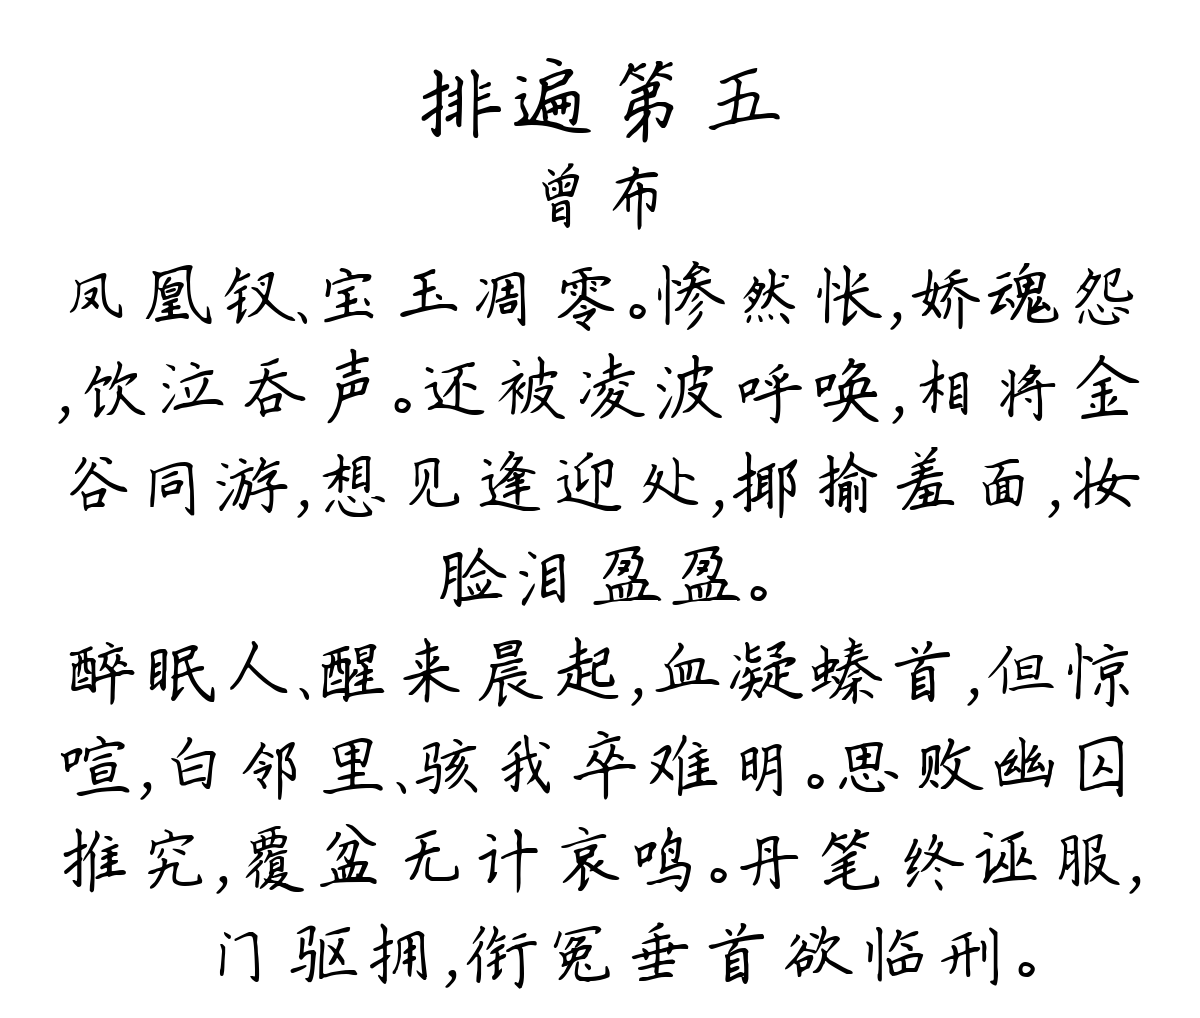 排遍第五
曾布
凤凰钗、宝玉凋零。惨然怅,娇魂怨
,饮泣吞声。还被凌波呼唤,相将金
谷同游,想见逢迎处,揶揄羞面,妆
脸泪盈盈。
醉眠人、醒来晨起,血凝螓首,但惊
喧,白邻里、骇我卒难明。思败幽囚
推究,覆盆无计哀鸣。丹笔终诬服,
门驱拥,衔冤垂首欲临刑。